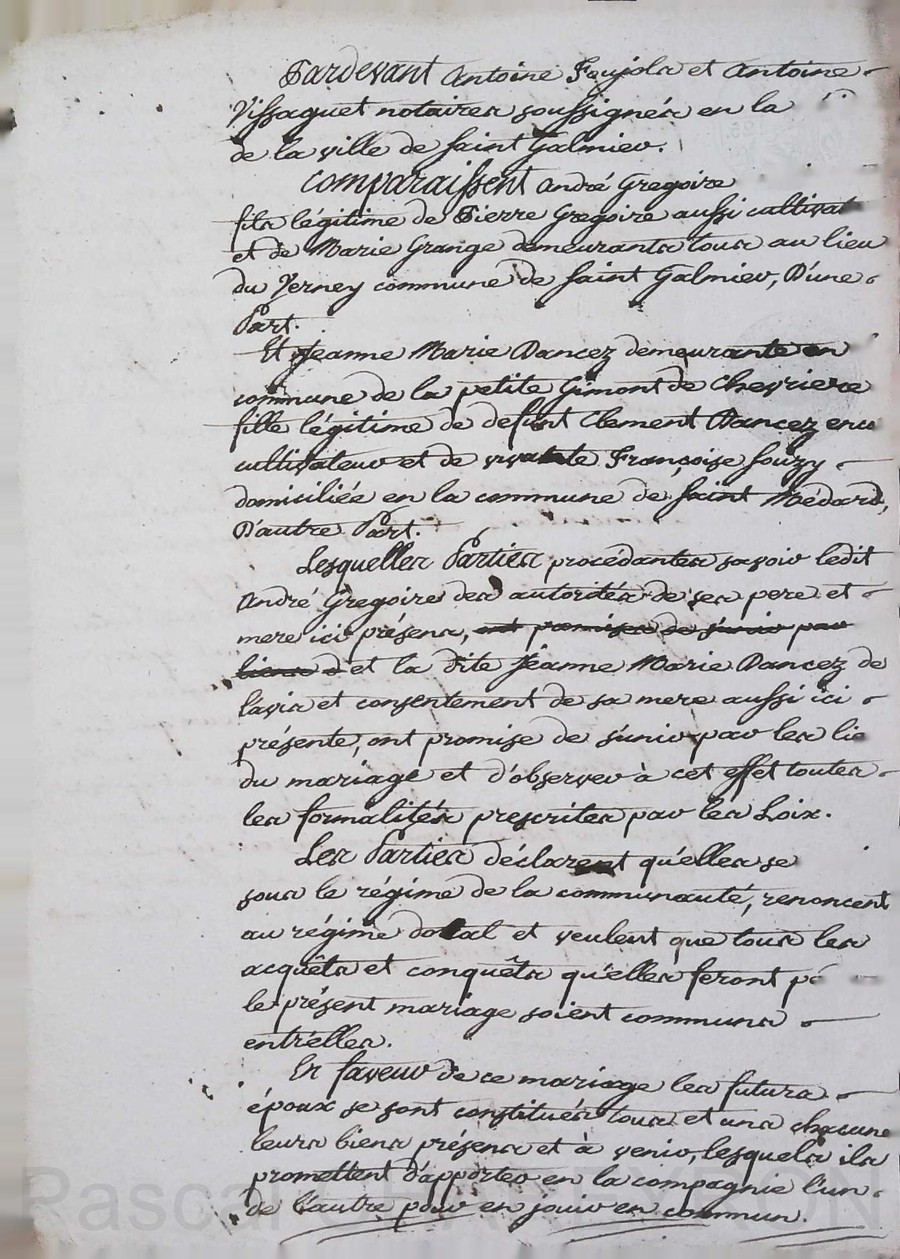 Pardevant Antoine Faujola et Antoine
Vissaguet notaires soussignés en la
de la ville de Saint Galmier.
Comparaissent André Gregoire
fils légitime de Pierre Gregoire aussi cultivat
et de Marie Grange demeurants tous au lieu
du Verney commune de Saint Galmier, D'une
Part.
Et Jeanne Marie Dancez demeurante en
commune de la petite Gimont de Chevriere
fille légitime de defunt Clement Dancez
cultivateur et de vivante Françoise Souzy
domiciliée en la commune de Saint Médard,
D'autre Part.
Lesquelles Parties procédantes savoir ledit
André Gregoire des autorités de ses pere et
mere ici présens, ont promises de s'unir par
liens d et la dite Jeanne Marie Dancez de
l'avis et consentement de sa mere aussi ici
présente, ont promise de s'unir par les lie
du mariage et d'observer à cet effet toutes
les formalités prescrites par les Loix.
Les Parties déclarent qu'elles se
sous le régime de la communauté, renoncent
au régime dotal et veulent que tous les
acquêts et conquêts qu'elles feront p
le présent mariage soient communs
entr'elles.
En faveur de ce mariage les futurs
époux se sont constitués tous et uns chacune
leurs biens présens et à venir, lesquels ils
promettent d'apporter en la compagnie l'un
de l'autre pour en jouir en commun.